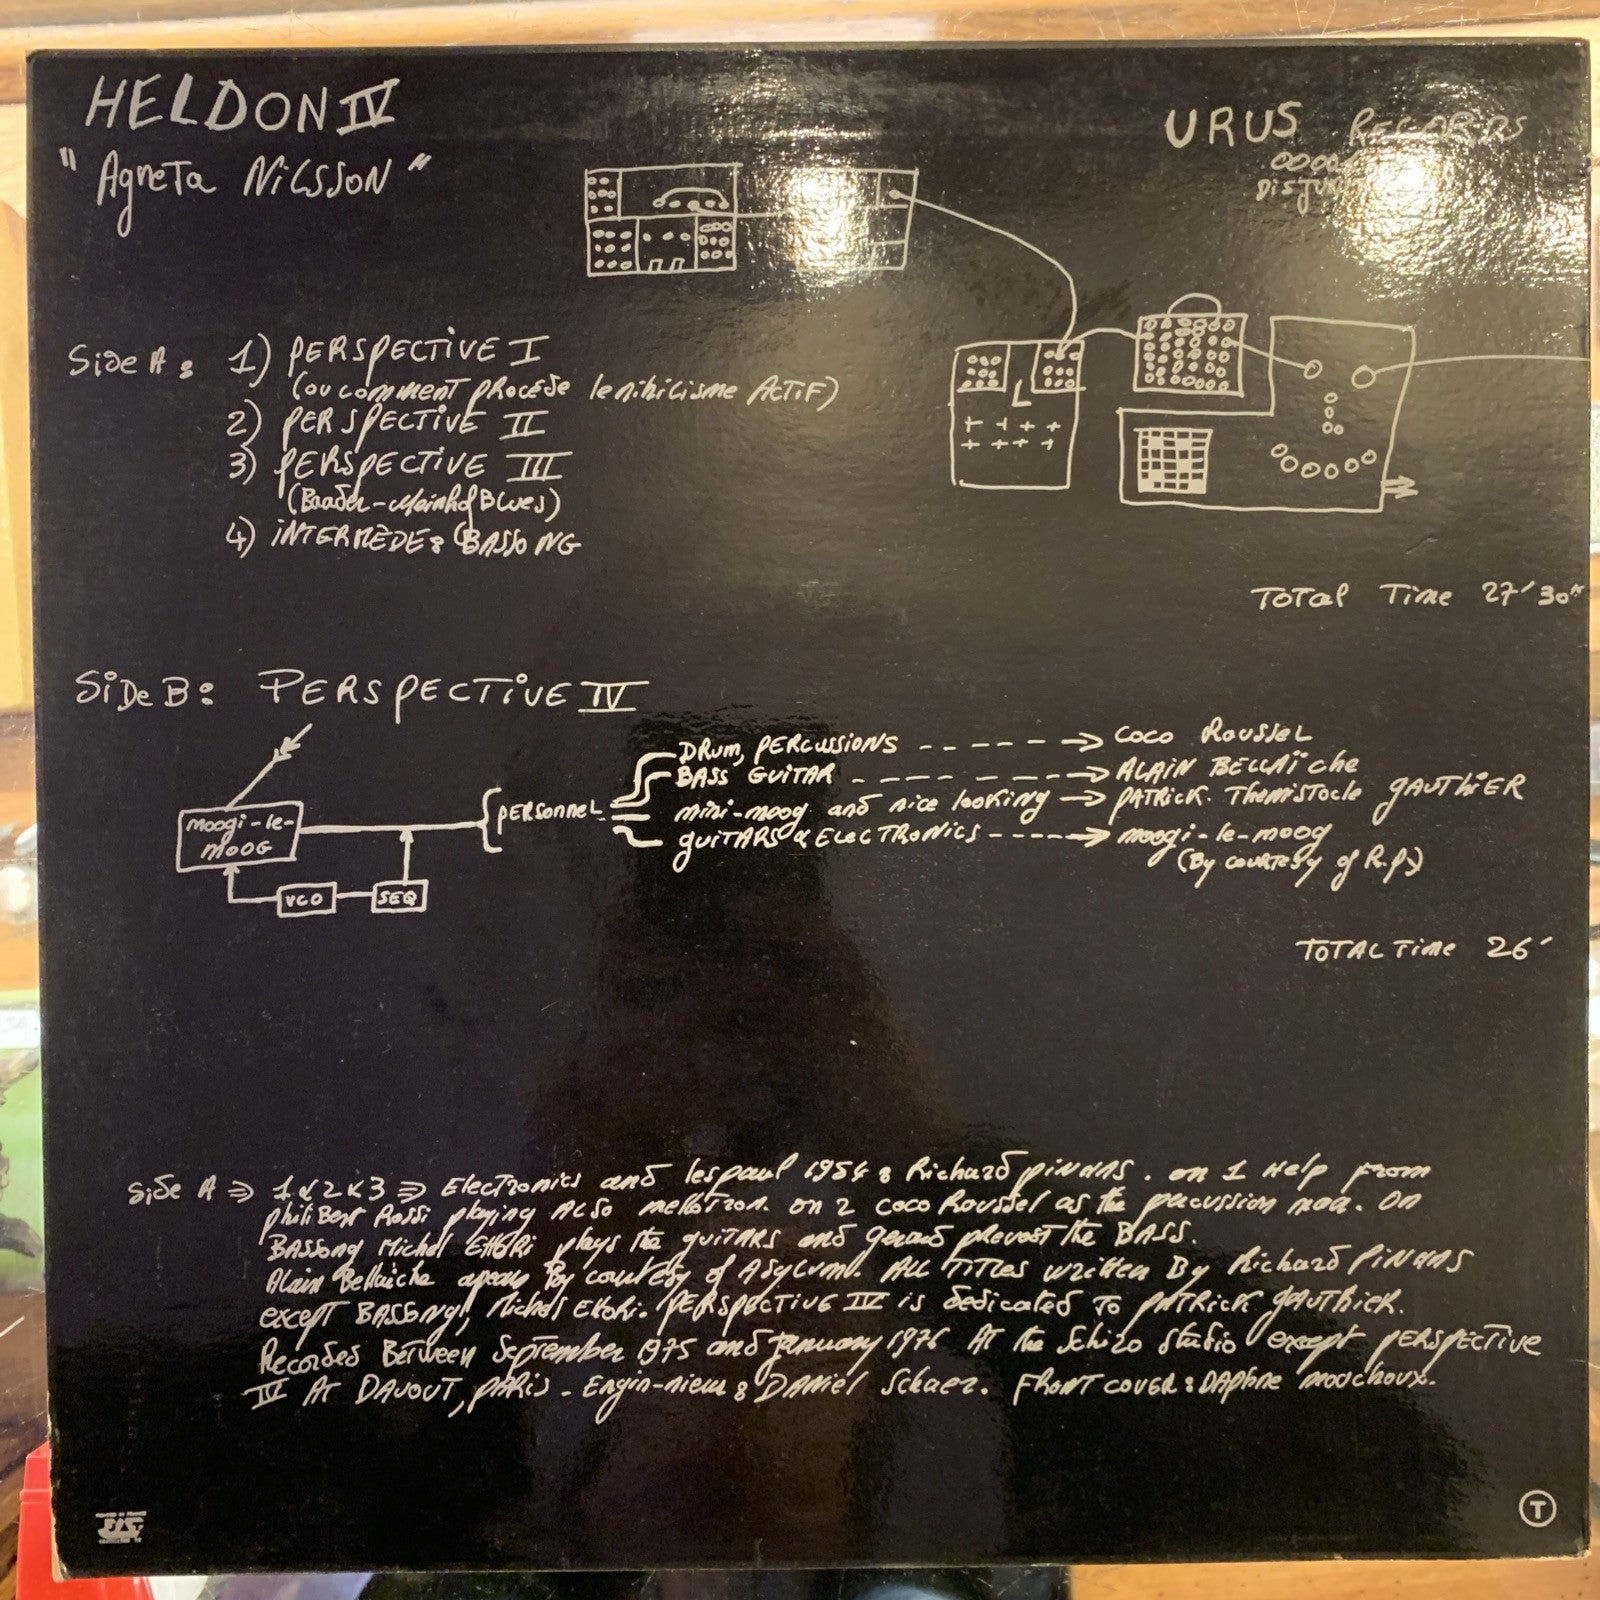 HELDON IV
"Agneta Nilsson"
URUS RECORDS
Side A: 1) PERSPECTIVE I
(ou comment procède le nihilisme ACTIF)
2) PERSPECTIVE II
3) PERSPECTIVE III
(Baader-Meinhof Blues)
4) INTERMÈDE: BASSONG
L
TOTAL Time 27'30"
SiDe B: PERSPECTIVE IV
DRum, PERCussions ----> COCO ROUSSEL
BASS GUITAR ----> ALAIN BELLAÏche
mini-moog and nice looking → PATRICK. Themistocle GAUTHIER
guitars & ELECTRONICS ----> moogi-le-moog
(By courtesy of R.P.)
PERSONNEL
moogi-le-
mooG
VCO
SEQ
TOTAL Time 26'
Side A ⇒ 1 & 2 & 3 ⇒ Electronics and lespaul 1954: Richard PINHAS. on 1 Help from
Philibert Rossi playing ALSO mellotron. on 2 Coco Roussel as the percussion man. ON
BASSong Michel ETTORI plays the guitars and gerard prevost the BASS.
Alain Bellaiche appears By courtesy of Asylum. ALL TITLES written By Richard PINHAS
except BASSong, Michel Ettori. PERSPECTIVE IV is dedicated to PATRICK GAUTHIER.
Recorded Between September 1975 and January 1976 At the Schizo studio except PERSPECTIVE
IV At DAVOUT, PARIS - Engin-nieur: DANiel Schaer. FRONT COVER: DAphne mouchoux.
T